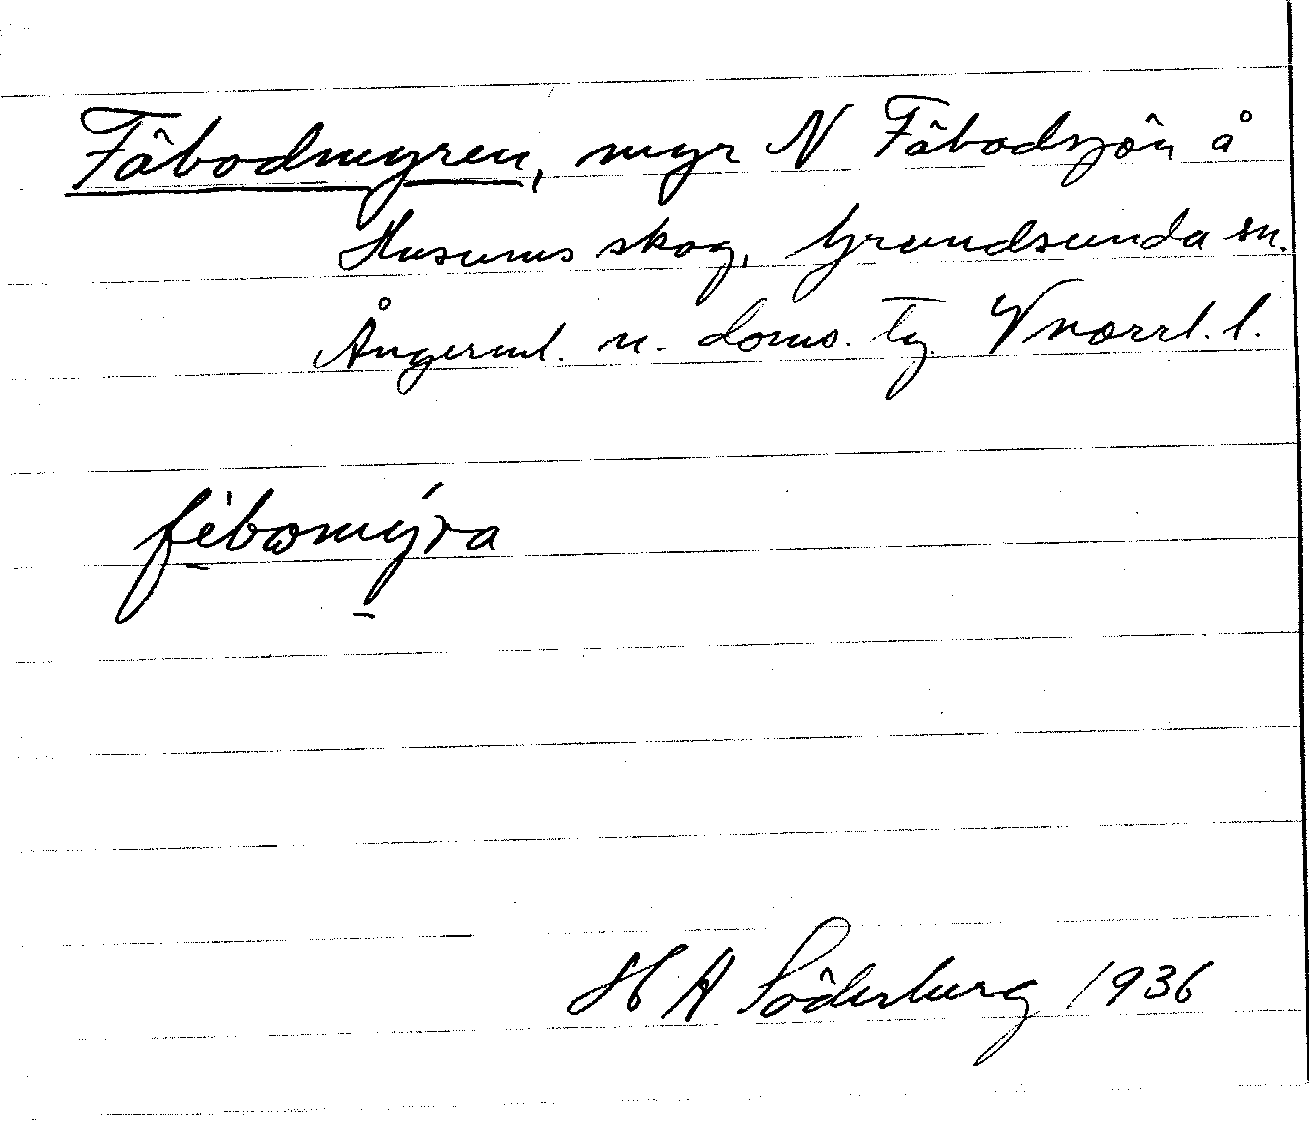 Fäbodmyren, myr N Fäbodsjön å
Husums skog, Grundsunda sn.
Ångerml. n. doms. tg Vnorrl. l.
fèbωmýra
H A Söderberg 1936